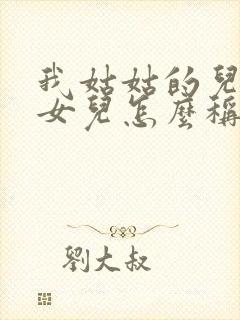 我姑姑的兒
女兒怎麼稱
劉大叔